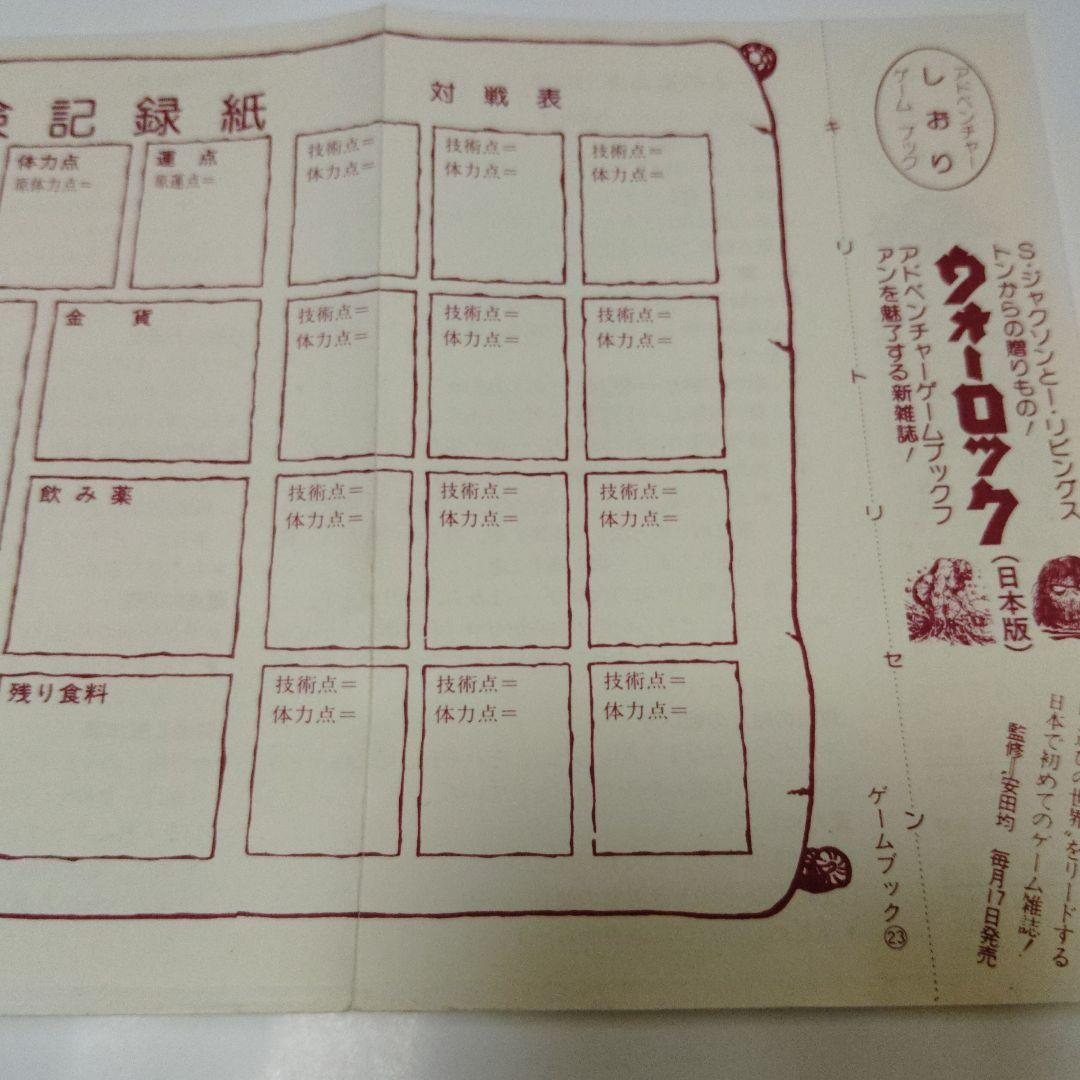 険記録紙
体力点
原体力点=
運 点
原運点=
金 貨
飲み薬
残り食料
対戦表
技術点=
体力点=
技術点=
体力点=
技術点=
体力点=
技術点=
体力点=
技術点=
体力点=
技術点=
体力点=
技術点=
体力点=
技術点=
体力点=
技術点=
体力点=
技術点=
体力点=
技術点=
体力点=
技術点=
体力点=
キリトリセン
ゲームブック㉓
アドベンチャー
ゲームブック
しおり
S・ジャクソンとI・リビングス
トンからの贈りもの!
ウォーロック
(日本版)
アドベンチャーゲームブックフ
アンを魅了する新雑誌!
の世界〟をリードする
日本で初めてのゲーム雑誌!
監修=安田均 毎月17日発売